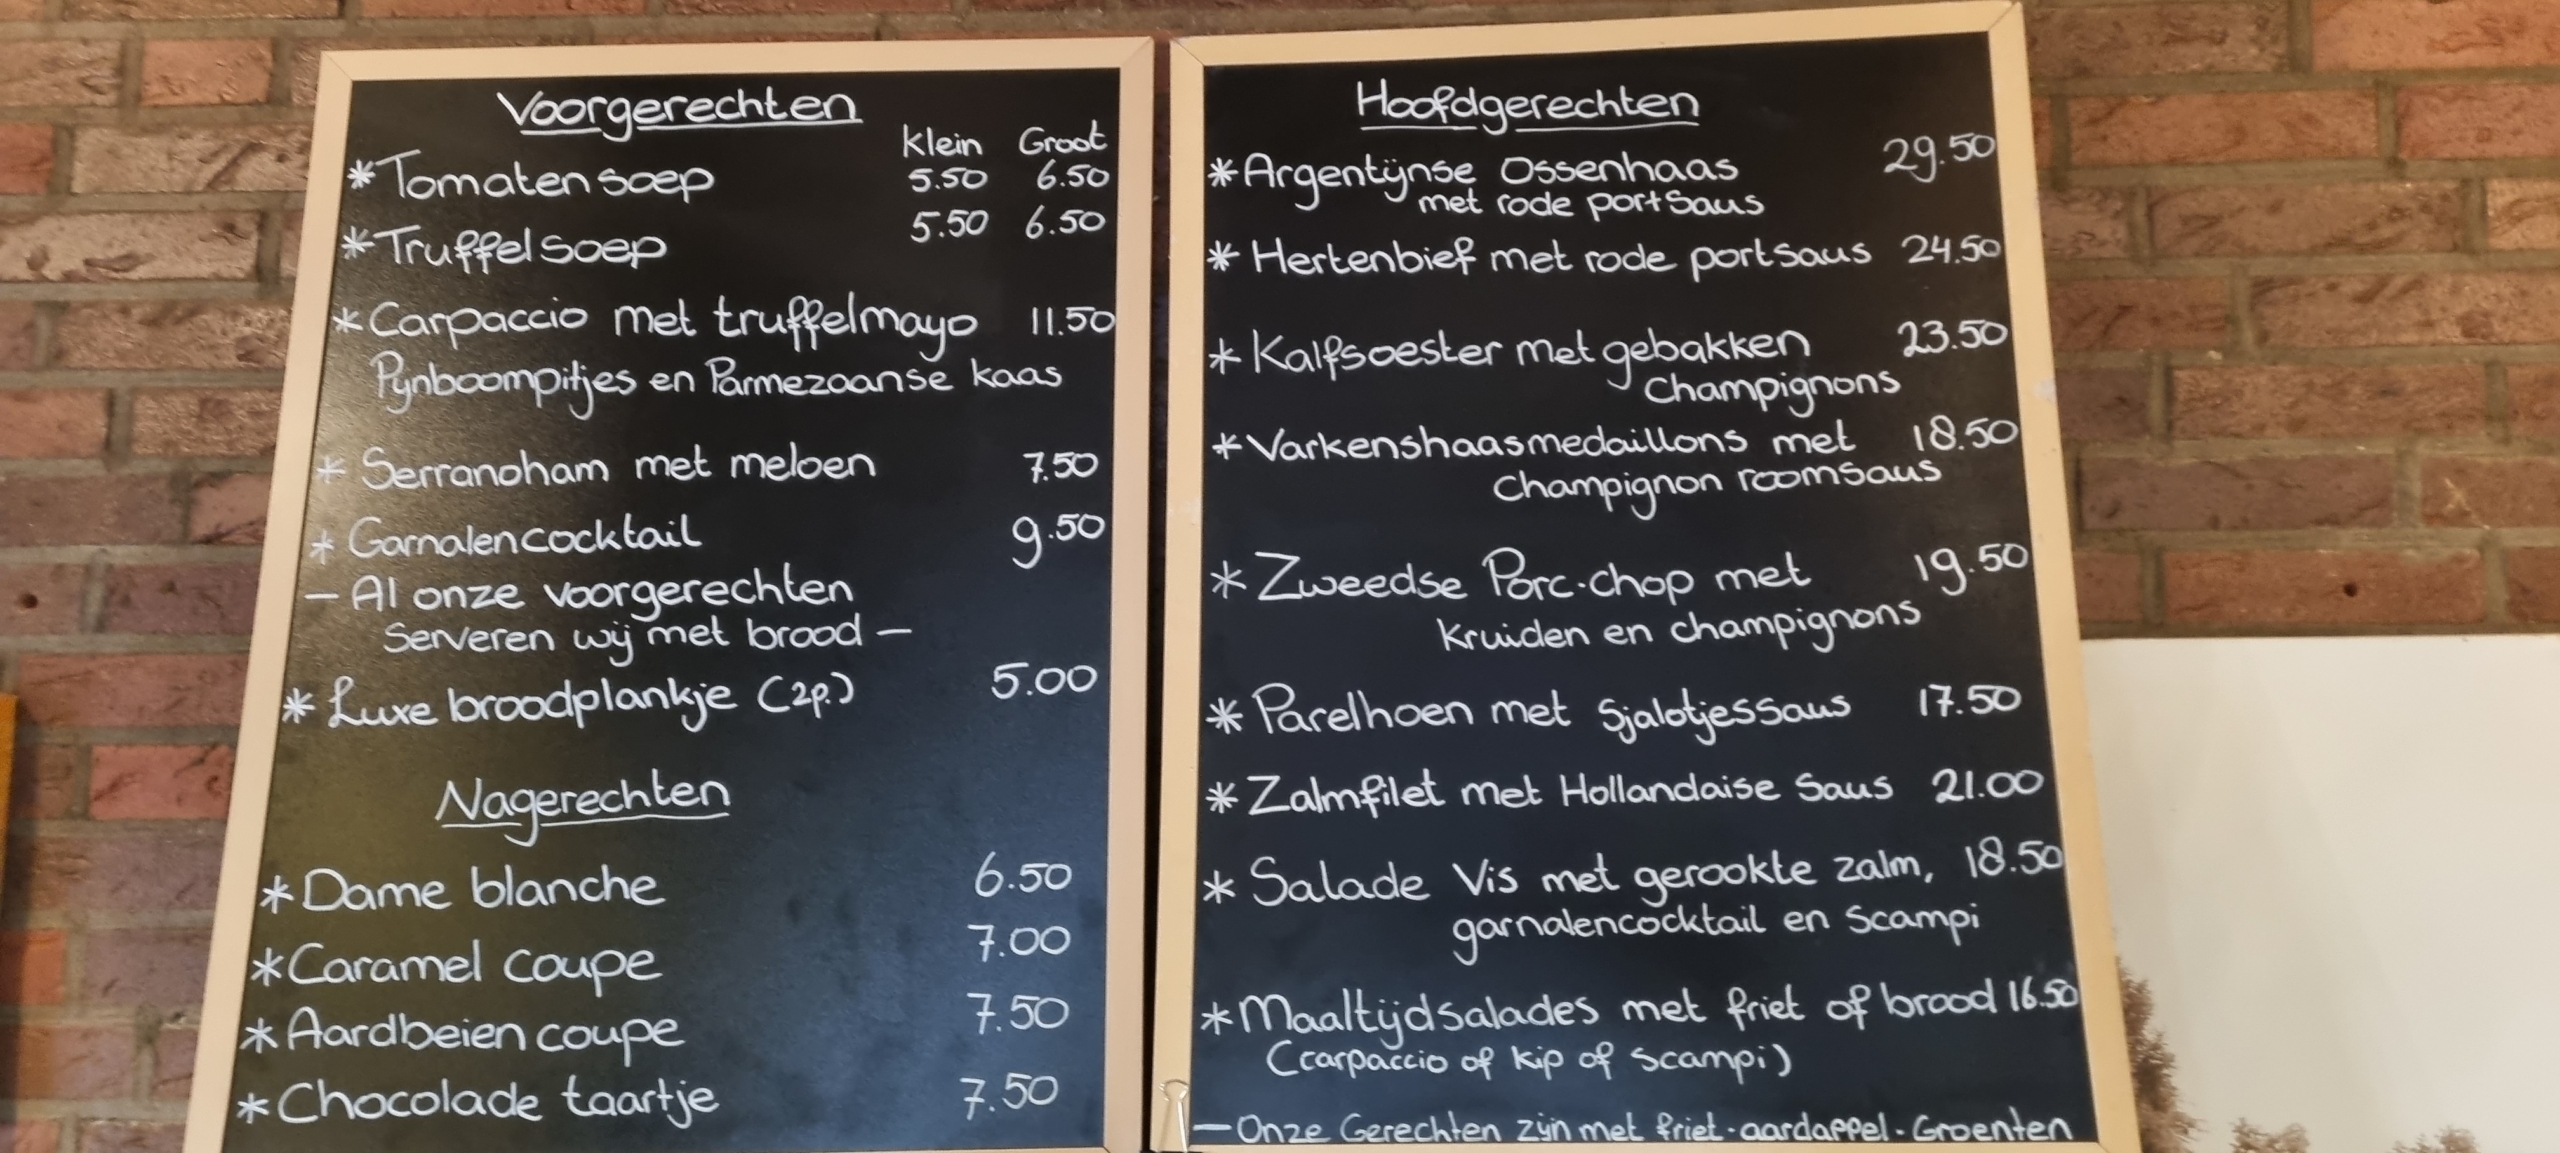 Voorgerechten
Klein Groot
*Tomatensoep 5.50 6.50
*Truffelsoep 5.50 6.50
*Carpaccio met truffelmayo 11.50
Pijnboompitjes en Parmezaanse kaas
* Serranoham met meloen 7.50
* Garnalencocktail 9.50
- Al onze voorgerechten
Serveren wij met brood -
* Luxe broodplankje (2p.) 5.00
Nagerechten
*Dame blanche 6.50
*Caramel coupe 7.00
*Aardbeien coupe 7.50
*Chocolade taartje 7.50
Hoofdgerechten
*Argentijnse Ossenhaas 29.50
met rode portsaus
* Hertenbief met rode portsaus 24.50
* Kalfsoester met gebakken 23.50
Champignons
*Varkenshaasmedaillons met 18.50
Champignon roomsaus
* Zweedse Porc-chop met 19.50
kruiden en champignons
* Parelhoen met Sjalotjessaus 17.50
* Zalmfilet met Hollandaise Saus 21.00
* Salade Vis met gerookte zalm, 18.50
garnalencocktail en Scampi
*Maaltijdsalades met friet of brood 16.50
(carpaccio of kip of scampi)
- Onze Gerechten zijn met friet-aardappel-Groenten